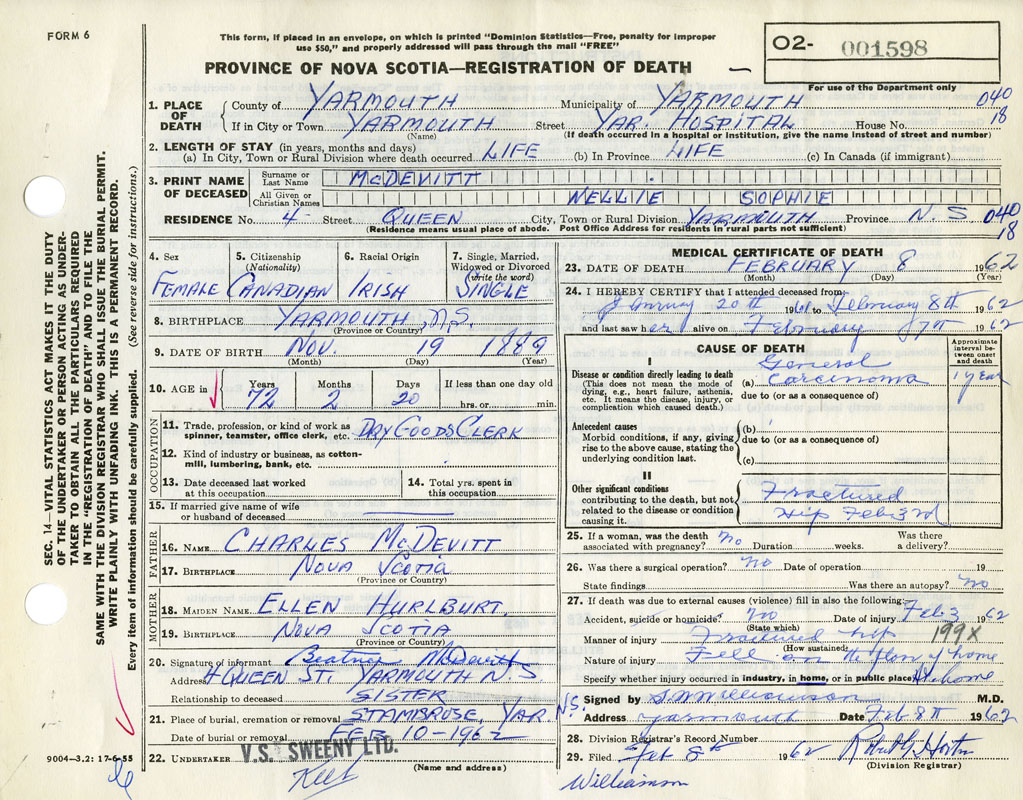 FORM 6
This form, if placed in an envelope, on which is printed "Dominion Statistics—Free, penalty for improper
use $50," and properly addressed will pass through the mail "FREE"
PROVINCE OF NOVA SCOTIA—REGISTRATION OF DEATH
O2- 001598
For use of the Department only
SEC. 14—VITAL STATISTICS ACT MAKES IT THE DUTY
OF THE UNDERTAKER OR PERSON ACTING AS UNDER-
TAKER TO OBTAIN ALL THE PARTICULARS REQUIRED
IN THE "REGISTRATION OF DEATH" AND TO FILE THE
SAME WITH THE DIVISION REGISTRAR WHO SHALL ISSUE THE BURIAL PERMIT.
WRITE PLAINLY WITH UNFADING INK. THIS IS A PERMANENT RECORD.
Every item of information should be carefully supplied. (See reverse side for instructions.)
1. PLACE OF DEATH
County of YARMOUTH Municipality of YARMOUTH 040
If in City or Town YARMOUTH Street YAR. HOSPITAL House No. 18
(Name) (If death occurred in a hospital or institution, give the name instead of street and number)
2. LENGTH OF STAY (in years, months and days)
(a) In City, Town or Rural Division where death occurred LIFE (b) In Province LIFE (c) In Canada (if immigrant)
3. PRINT NAME OF DECEASED
Surname or Last Name McDEVITT
All Given or Christian Names NELLIE SOPHIE
RESIDENCE No. 4 Street QUEEN City, Town or Rural Division YARMOUTH Province N.S. 040
(Residence means usual place of abode. Post Office Address for residents in rural parts not sufficient) 18
4. Sex FEMALE
5. Citizenship (Nationality) CANADIAN
6. Racial Origin IRISH
7. Single, Married, Widowed or Divorced (write the word) SINGLE
8. BIRTHPLACE YARMOUTH, N.S.
(Province or Country)
9. DATE OF BIRTH NOV. 19 1889
(Month) (Day) (Year)
10. AGE in
Years Months Days If less than one day old
72 2 20 hrs. or min.
OCCUPATION
11. Trade, profession, or kind of work as
spinner, teamster, office clerk, etc. DRY GOODS CLERK
12. Kind of industry or business, as cotton-
mill, lumbering, bank, etc.
13. Date deceased last worked at this occupation
14. Total yrs. spent in this occupation
15. If married give name of wife
or husband of deceased
FATHER
16. NAME CHARLES McDEVITT
17. BIRTHPLACE NOVA SCOTIA
(Province or Country)
MOTHER
18. MAIDEN NAME ELLEN HURLBURT
19. BIRTHPLACE NOVA SCOTIA
(Province or Country)
20. Signature of informant Beatrice McDevitt
Address 4 QUEEN ST. YARMOUTH N.S
Relationship to deceased SISTER
21. Place of burial, cremation or removal STAMBROSE, YAR. N.S.
Date of burial or removal FEB 10-1962
22. UNDERTAKER V.S. SWEENY LTD.
(Name and address)
9004—3.2: 17-6-55
MEDICAL CERTIFICATE OF DEATH
23. DATE OF DEATH FEBRUARY 8 1962
(Month) (Day) (Year)
24. I HEREBY CERTIFY that I attended deceased from:
January 20th 1961 to February 8th 1962
and last saw her alive on February 7th 1962
CAUSE OF DEATH
Approximate interval between onset and death
I
Disease or condition directly leading to death
(This does not mean the mode of
dying, e.g., heart failure, asthenia,
etc. It means the disease, injury, or
complication which caused death.)
(a) General Carcinoma 1 year
due to (or as a consequence of)
Antecedent causes
Morbid conditions, if any, giving
rise to the above cause, stating the
underlying condition last.
(b)
due to (or as a consequence of)
(c)
II
Other significant conditions
contributing to the death, but not
related to the disease or condition
causing it.
Fractured
Hip Feb 3rd
25. If a woman, was the death
associated with pregnancy? No Duration weeks. Was there a delivery?
26. Was there a surgical operation? No Date of operation 19
State findings Was there an autopsy? No
27. If death was due to external causes (violence) fill in also the following:
Accident, suicide or homicide? No Date of injury Feb 3 1962
(State which)
Manner of injury Fractured hip 199X
(How sustained)
Nature of injury Fell on the floor of home
Specify whether injury occurred in industry, in home, or in public place At home
Signed by Williamson M.D.
Address Yarmouth Date Feb 8th 1962
28. Division Registrar's Record Number
29. Filed Feb 8th 1962 Robert G. Horton
(Division Registrar)
Williamson